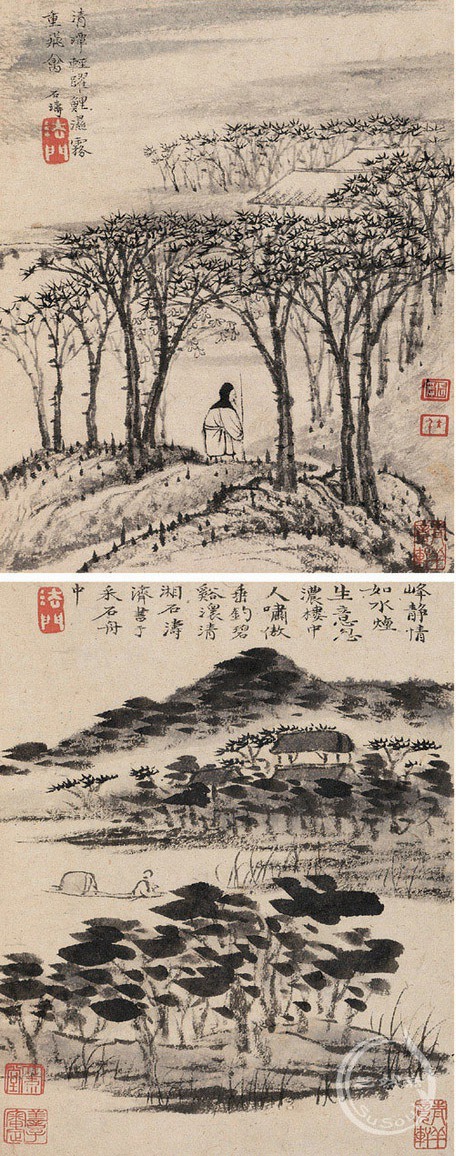 清潭輕躍鯉濕霧
重飛禽 石濤
法門
峰靜情
如水煙
生意忽
濃樓中
人嘯傲
垂釣碧
谿濱清
湘石濤
濟書于
采石舟
中
法門